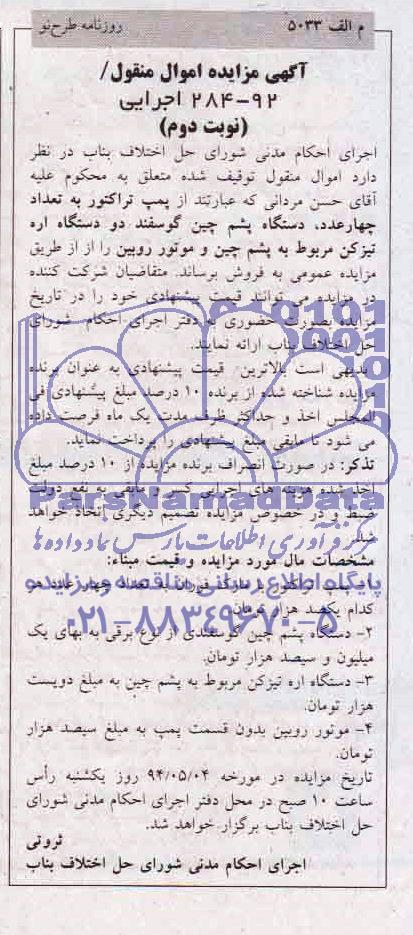 م الف ۵۰۳۳ روزنامه طرح‌نو
آگهی مزایده اموال منقول/
۲۸۴-۹۲ اجرایی
(نوبت دوم)
اجرای احکام مدنی شورای حل اختلاف بناب در نظر
دارد اموال منقول توقیف شده متعلق به محکوم علیه
آقای حسن مردانی که عبارتند از پمپ تراکتور به تعداد
چهارعدد، دستگاه پشم چین گوسفند دو دستگاه اره
تیزکن مربوط به پشم چین و موتور روبین را از از طریق
مزایده عمومی به فروش برساند. متقاضیان شرکت کننده
در مزایده می توانند قیمت پیشنهادی خود را در تاریخ
مزایده بصورت حضوری به دفتر اجرای احکام شورای
حل اختلاف بناب ارائه نمایند.
بدیهی است بالاترین قیمت پیشنهادی به عنوان برنده
مزایده شناخته شده از برنده ۱۰ درصد مبلغ پیشنهادی فی
المجلس اخذ و حداکثر ظرف مدت یک ماه فرصت داده
می شود تا مابقی مبلغ پیشنهادی را پرداخت نماید.
تذکر: در صورت انصراف برنده مزایده از ۱۰ درصد مبلغ
اخذ شده هزینه های اجرایی کسر و مابقی به نفع دولت
ضبط و در خصوص مزایده تصمیم دیگری اتخاذ خواهد
شد.
مشخصات مال مورد مزایده و قیمت مبناء:
۱- پمپ تراکتور با مارک فیران به تعداد چهار عدد هر
کدام یکصد هزار تومان.
۲- دستگاه پشم چین گوسفندی از نوع برقی به بهای یک
میلیون و سیصد هزار تومان.
۳- دستگاه اره تیزکن مربوط به پشم چین به مبلغ دویست
هزار تومان.
۴- موتور روبین بدون قسمت پمپ به مبلغ سیصد هزار
تومان.
تاریخ مزایده در مورخه ۹۴/۰۵/۰۴ روز یکشنبه رأس
ساعت ۱۰ صبح در محل دفتر اجرای احکام مدنی شورای
حل اختلاف بناب برگزار خواهد شد.
ثروتی
اجرای احکام مدنی شورای حل اختلاف بناب
ParsNamadData
مرکز فرآوری اطلاعات پارس نماد داده ها
پایگاه اطلاع رسانی مناقصه و مزایده
۰۲۱-۸۸۳۴۹۶۷۰-۵